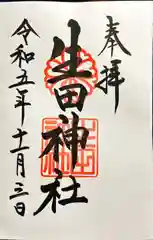 奉拝
生田神社
令和五年十一月三日